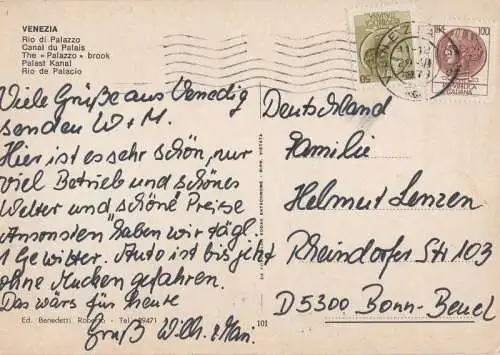 VENEZIA
Rio di Palazzo
Canal du Palais
The « Palazzo » brook
Palast Kanal
Rio de Palacio
Viele Grüße aus Venedig
senden W + M.
Hier ist es sehr schön, nur
viel Betrieb und schönes
Wetter und "schöne" Preise
Ansonsten haben wir tägl.
1 Gewitter. Auto ist bis jetzt
ohne Mucken gefahren.
Das wärs für heute
Gruß Wilh. + Mar.
Ed. Benedetti Roberto - Tel. 29471
101
50
100
ITALIANA
VENEZIA
11-12
Deutschland
Familie
Helmut Lenzen
Rheindorfer Str 103
D5300 Bonn-Beuel